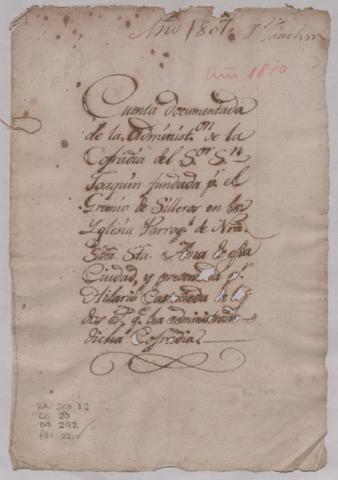 Año 1807.
Sn. Joachin
Año 1810
Cuenta documentada
de la administ.on de la
Cofradia del S.or S.n
Joaquin fundada p.r el
Gremio de Silleros en la
Yglesia Parroq.l de Nra.
Sra. Sta. Ana de esta
Ciudad, y presentada p.r
Hilario Castañeda de los
dos q.e ha administrado
dicha Cofradia.